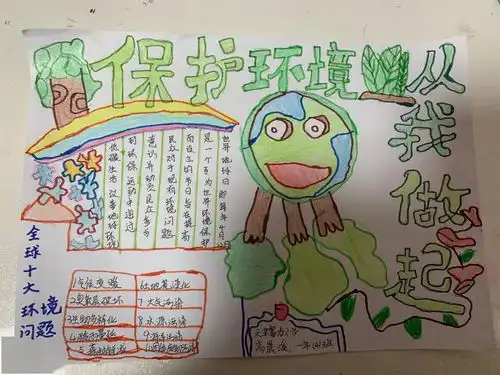 保护环境从
我
做
起
世界地球日即每年4月22
是一个专为世界环境保护
而设立的节日旨在提高
民众对于现有环境问题
意识并动员民众参与
到环保运动中通过
低碳生活改善地球环境
全球十大
环境
问题
1气候变暖
2臭氧层破坏
3生物多样化
4酸雨蔓延
5森林锐减
6土地荒漠化
7大气污染
8水源污染
9海洋污染
一年(4)班